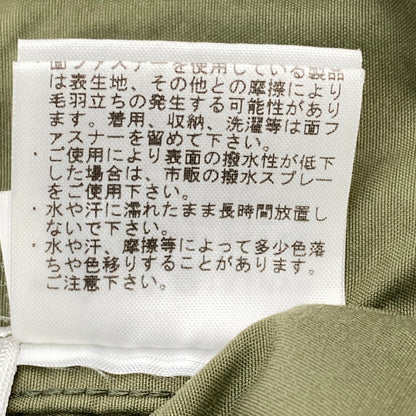 面ファスナーを使用している製品
は表生地、その他との摩擦により
毛羽立ちの発生する可能性があり
ます。着用、収納、洗濯等は面フ
ァスナーを留めて下さい。
・ご使用により表面の撥水性が低下
した場合は、市販の撥水スプレー
をご使用下さい。
・水や汗に濡れたまま長時間放置し
ないで下さい。
・水や汗、摩擦等によって多少色落
ちや色移りすることがあります。
ご注意下さい。